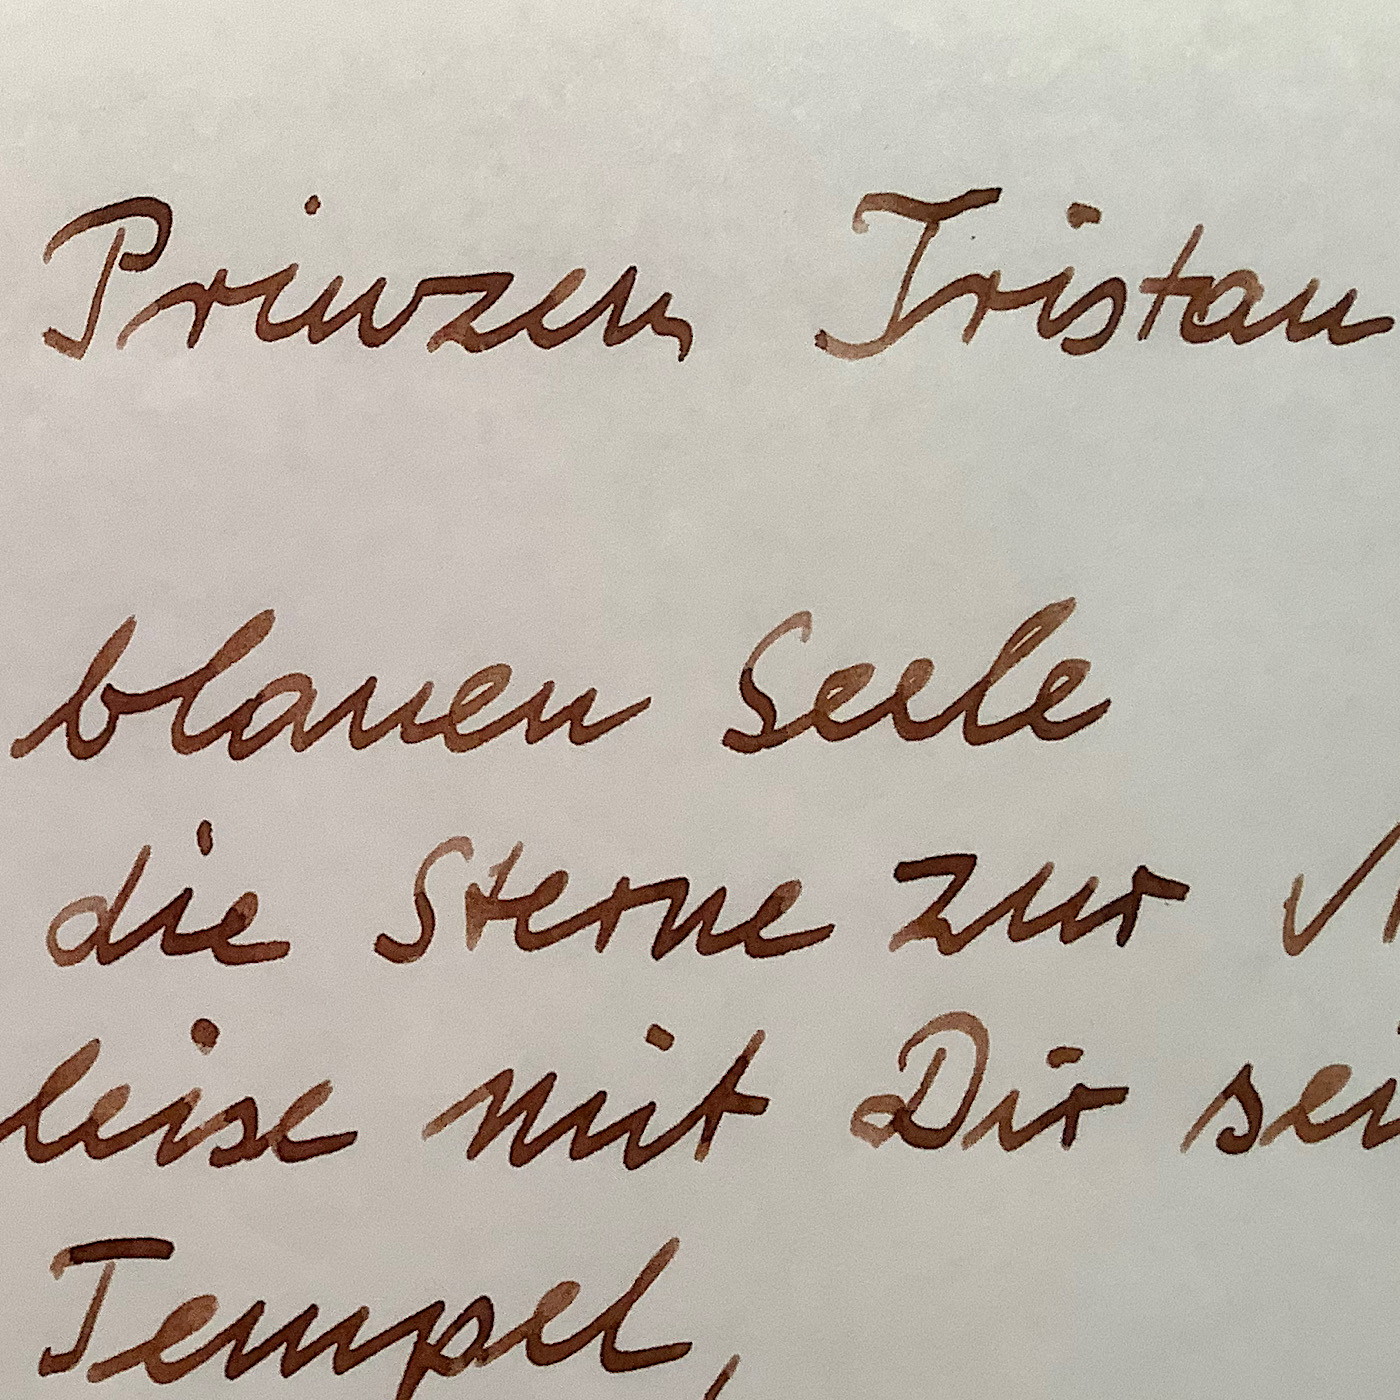 Prinzen Tristan
blauen Seele
die Sterne zur
leise mit Dir
Tempel,